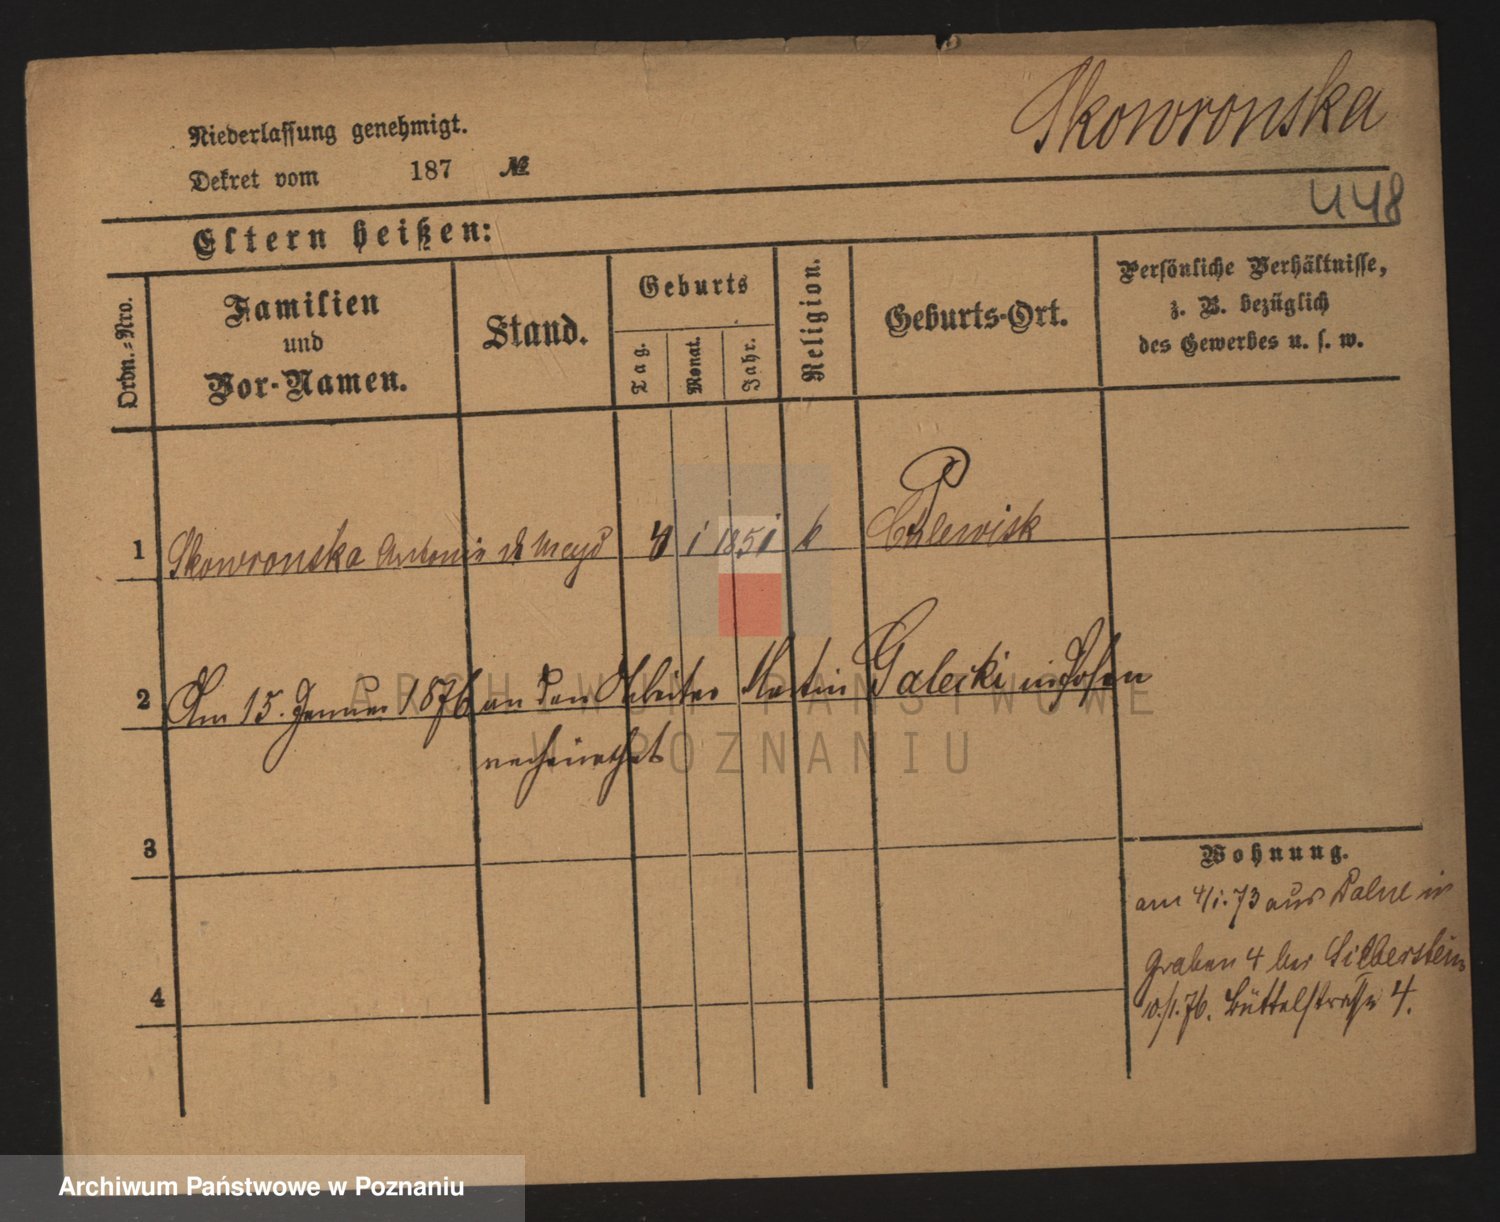 Skowronska
Niederlassung genehmigt.
Dekret vom 187 №
448
Eltern heißen:
Ordn.-Nro.
Familien
und
Vor-Namen.
Stand.
Geburts
Tag.
Monat.
Jahr.
Religion.
Geburts-Ort.
Persönliche Verhältnisse,
z. B. bezüglich
des Gewerbes u. s. w.
1 Skowronska Antonie Magd 4 1 1851 k
2 Am 15. Januar 1876 an den Arbeiter Martin Galecki in Posen
verheirathet
3
Wohnung.
am 4/1. 73 aus in
Graben 4 bei Silberstein
4
10./1. 76. Büttelstraße 4.
ARCHIWUM PAŃSTWOWE
W POZNANIU
Archiwum Państwowe w Poznaniu